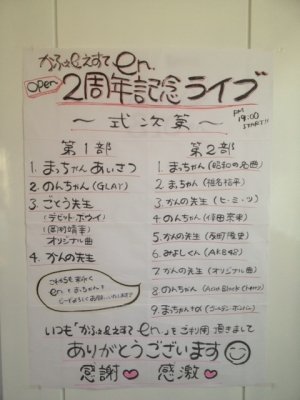 かふぇ&えすて en.
open 2周年記念ライブ
PM 19:00 START!!
〜 式次第 〜
第1部
1. まっちゃん あいさつ
2. のんちゃん (GLAY)
3. ごとう先生
(デビット・ボウイ)
(岡村靖幸)
オリジナル曲
4. かの先生
これからも末永く
en.とまっちゃんを
ど〜ぞよろしくお願いいたします!!
第2部
1. まっちゃん (昭和の名曲)
2. まっちゃん (椎名林檎)
3. かの先生 (ヒ・ミ・ツ)
4. のんちゃん (倖田來未)
5. かの先生 (反町隆史)
6. みよしくん (AKB48)
7. かの先生 (オリジナル曲)
8. のんちゃん (Acid Black Cherry)
9. まっちゃん (ゴールデンボンバー)
いつも「かふぇ&えすて en.」をご利用頂きまして
ありがとうございます
感謝 感激